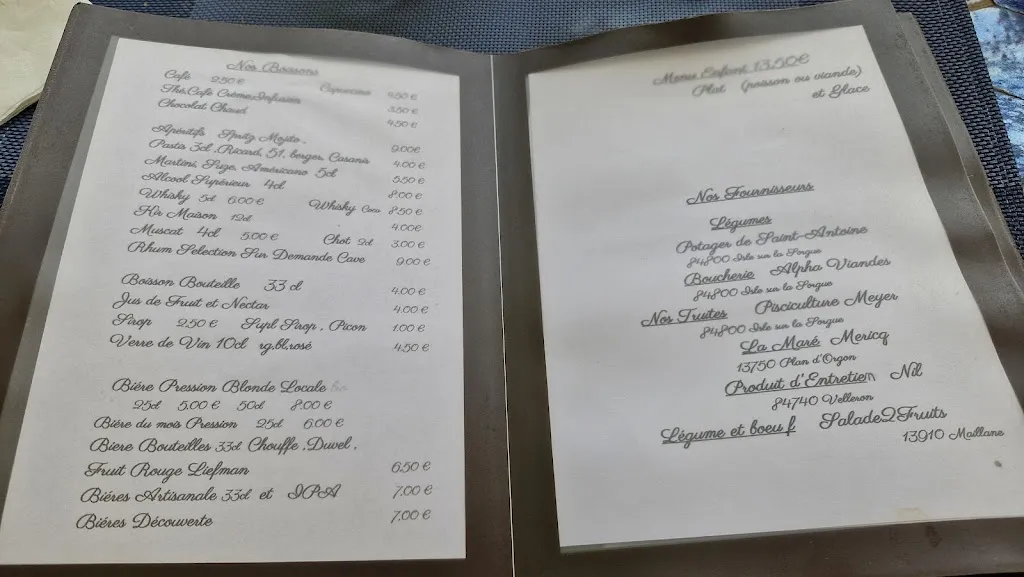 Nos Boissons
Café 2.50 € Capuccino 4.50 €
Thé, Café Crème, Infusion 3.50 €
Chocolat Chaud 4.50 €
Apéritifs Spritz Mojito . 9.00€
Pastis 3cl , Ricard, 51, berger, Casanis 4.00 €
Martini, Suze, Américano 5cl 5.50 €
Alcool Supérieur 4cl 8.00 €
Whisky 5cl 6.00 € Whisky Coca 8.50 €
Kir Maison 12cl 4.00€
Muscat 4cl 5.00 € Chot 2cl 3.00 €
Rhum Selection Sur Demande Cave 9.00 €
Boisson Bouteille 33 cl 4.00 €
Jus de Fruit et Nectar 4.00 €
Sirop 2.50 € Supl Sirop , Picon 1.00 €
Verre de Vin 10cl rg,bl,rosé 4.50 €
Biére Pression Blonde Locale
25cl 5.00 € 50cl 8.00 €
Biére du mois Pression 25cl 6.00 €
Biere Bouteilles 33cl Chouffe ,Duvel ,
Fruit Rouge Liefman 6.50 €
Biéres Artisanale 33cl et IPA 7.00 €
Biéres Découverte 7.00 €
Menu Enfant 13.50€
Plat (poisson ou viande)
et Glace
Nos Fournisseurs
Légumes
Potager de Saint-Antoine
84800 Isle sur la Sorgue
Boucherie Alpha Viandes
84800 Isle sur la Sorgue
Nos Truites Pisciculture Meyer
84800 Isle sur la Sorgue
La Maré Mericq
13750 Plan d'Orgon
Produit d'Entretien Nil
84740 Velleron
Légume et boeuf Salade2Fruits
13910 Maillane